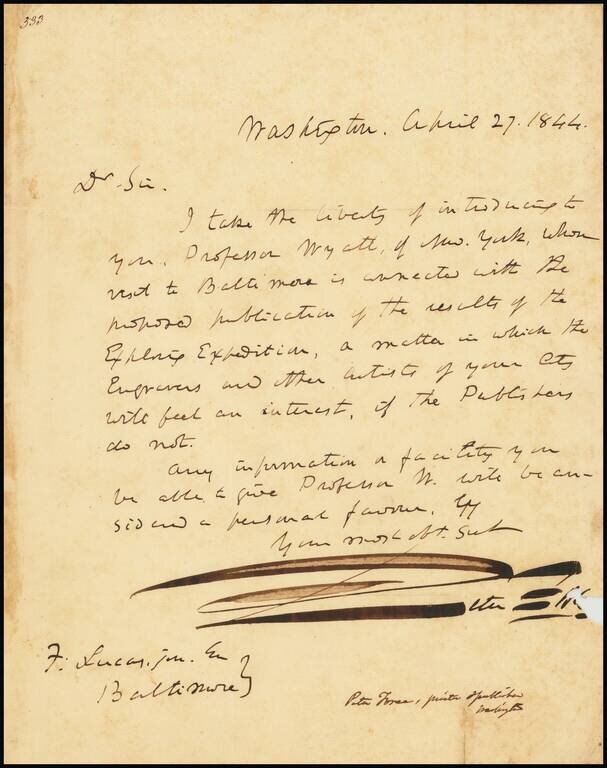 333
Washington. April 27. 1844.
Dr. Sir.
I take the liberty of introducing to
you, Professor Wyatt, of New. York, whose
visit to Baltimore is connected with the
proposed publication of the results of the
Exploring Expedition, a matter in which the
Engravers and other artists of your City
will feel an interest, if the Publishers
do not.
Any information or facility you
be able to give Professor W. will be con-
sidered a personal favour, by
Your most obt. Sevt
Peter
F. Lucas, jun. Esq
Baltimore }
Peter Force, printer & publisher
Washington